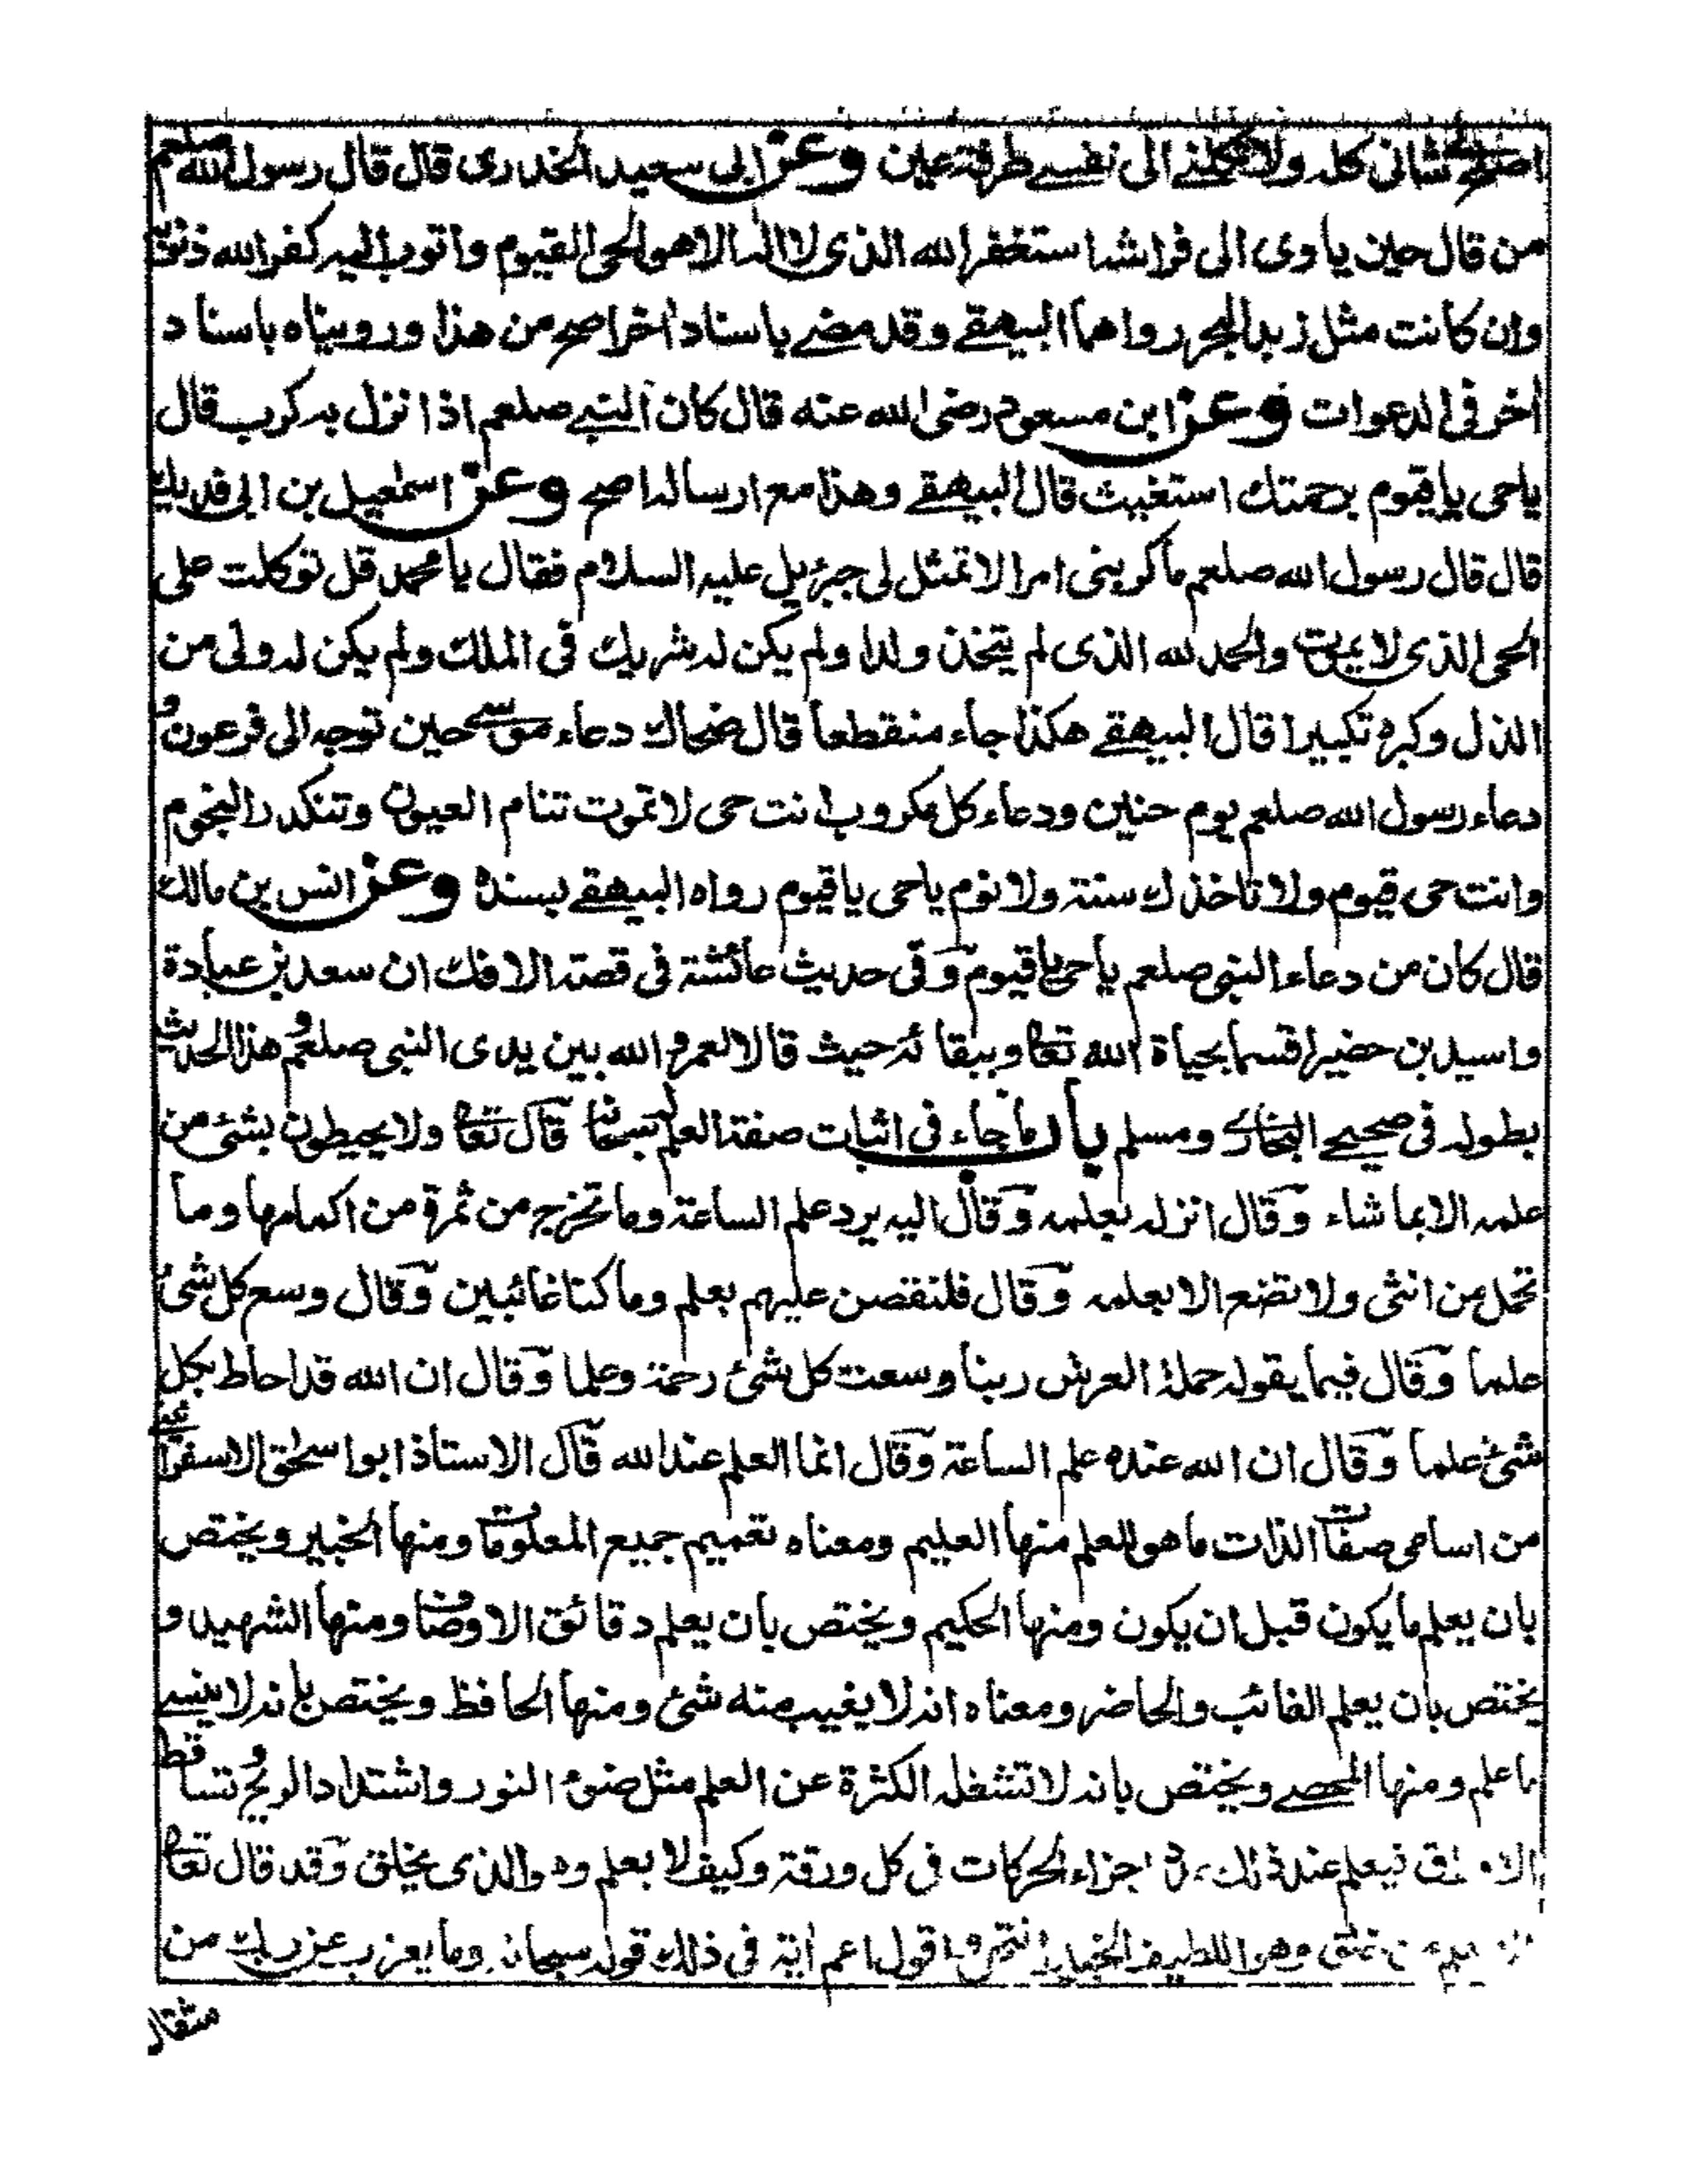 اصلح لي شاني كله ولا تكلني الى نفسي طرفة عين وعن ابي سعيد الخدري قال قال رسول الله صلعم
من قال حين ياوى الى فراشه استغفر الله الذى لا اله الا هو الحى القيوم واتوب اليه كفر الله ذنوبه
وان كانت مثل زبد البحر رواهما البيهقي وقد مضى باسناد اخر اصح من هذا وروينا ه باسنا د
اخر فى الدعوات وعن ابن مسعود رضى الله عنه قال كان النبي صلعم اذا نزل به كرب قال
ياحى ياقيوم برحمتك استغيث قال البيهقي وهذا مع ارساله اصح وعن اسمعيل بن ابى فديك
قال قال رسول الله صلعم ما كربنى امر الا تمثل لى جبرئيل عليه السلام فقال يا محمد قل توكلت على
الحى الذى لا يموت والحمد لله الذى لم يتخذ ولدا ولم يكن له شريك فى الملك ولم يكن له ولى من
الذل وكبره تكبيرا قال البيهقي هكذا جاء منقطعا قال ضحاك دعاء موسى حين توجه الى فرعون و
دعاء رسول الله صلعم يوم حنين ودعاء كل مكروب انت حى لا تموت تنام العيون وتنكدر النجوم
وانت حى قيوم ولا تاخذك سنة ولا نوم ياحى ياقيوم رواه البيهقي بسنده وعن انس بن مالك
قال كان من دعاء النبى صلعم ياحى ياقيوم وفى حديث عائشة فى قصة الافك ان سعد بن عبادة
واسيد بن حضير اقسما بحياة الله تعا وببقائه حيث قالا لعمرو الله بين يدى النبى صلعم و هذا الحديث
بطوله فى صحيح البخارى ومسلم باب ما جاء فى اثبات صفة العلم له سبحانه قال تعا ولا يحيطون بشئ من
علمه الا بما شاء وقال انزله بعلمه وقال اليه يرد علم الساعة وما تخرج من ثمرة من اكمامها وما
تحمل من انثى ولا تضع الا بعلمه وقال فلنقصن عليهم بعلم وما كنا غائبين وقال وسع كل شئ
علما وقال فيما يقوله حملة العرش ربنا وسعت كل شئ رحمة وعلما وقال ان الله قد احاط بكل
شئ علما وقال ان الله عنده علم الساعة وقال انما العلم عند الله قال الاستاذ ابو اسحق الاسفرائني
من اسامى صفات الذات ما هو للعلم منها العليم ومعناه تعميم جميع المعلومات ومنها الخبير ويختص
بان يعلم ما يكون قبل ان يكون ومنها الحكيم ويختص بان يعلم دقائق الاوصاف ومنها الشهيد و
يختص بان يعلم الغائب والحاضر ومعناه انه لا يغيب منه شئ ومنها الحافظ ويختص بانه لا ينسى
ما علم ومنها المحصى ويختص بانه لا تشغله الكثرة عن العلم مثل ضوء النور واشتداد الريح و تساقط
الاوراق فيعلم عند ذلك اجزاء الحركات فى كل ورقة وكيف لا يعلم وهو الذى يخلق وقد قال تعا
خلق وهو اللطيف الخبير انتهى و اقول اعم اية فى ذلك قوله سبحانه وما يعزب عن ربك من
مثقال